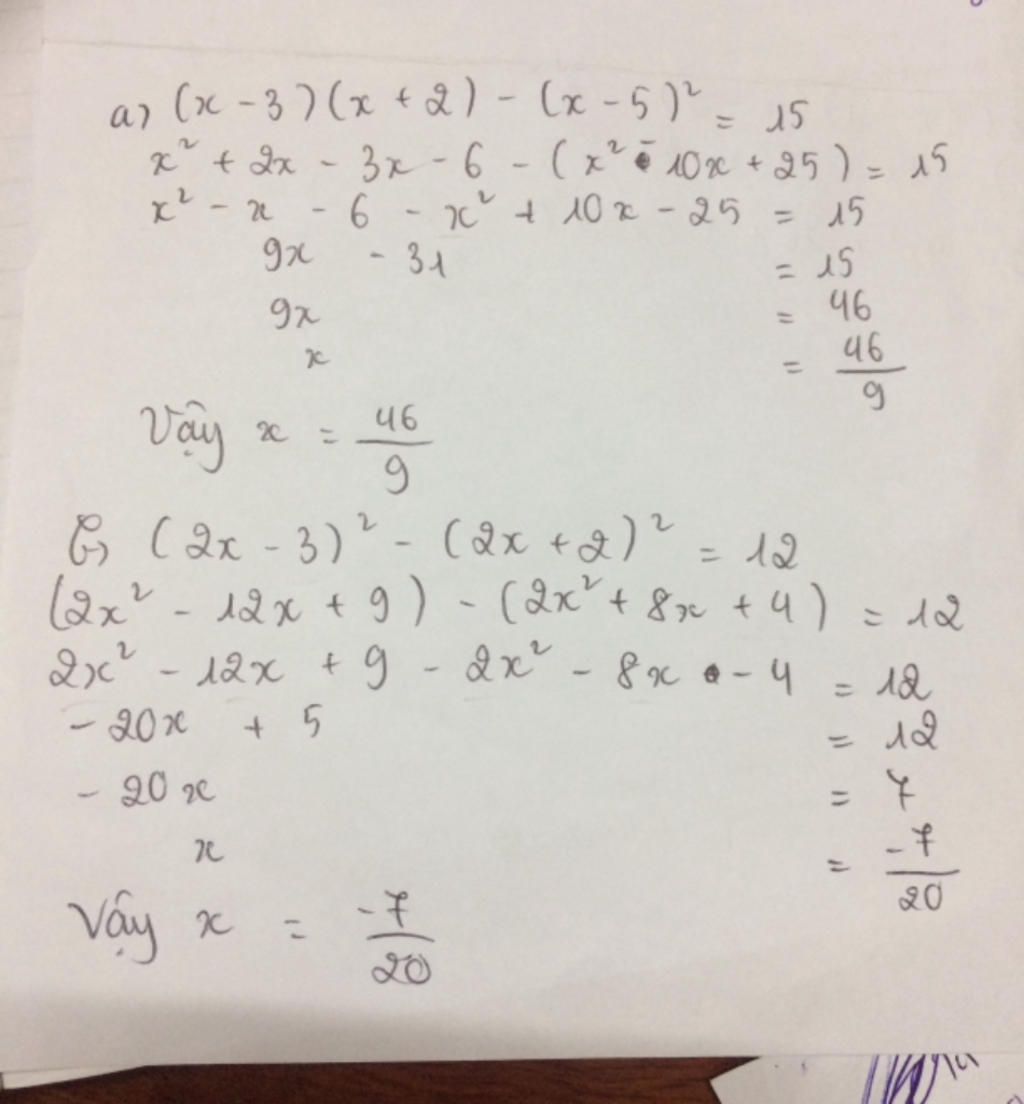 a) (x - 3)(x + 2) - (x - 5)² = 15
x² + 2x - 3x - 6 - (x² - 10x + 25) = 15
x² - x - 6 - x² + 10x - 25 = 15
9x - 31 = 15
9x = 46
x = 46/9
Vậy x = 46/9
b) (2x - 3)² - (2x + 2)² = 12
(2x² - 12x + 9) - (2x² + 8x + 4) = 12
2x² - 12x + 9 - 2x² - 8x - 4 = 12
- 20x + 5 = 12
- 20x = 7
x = -7/20
Vậy x = -7/20